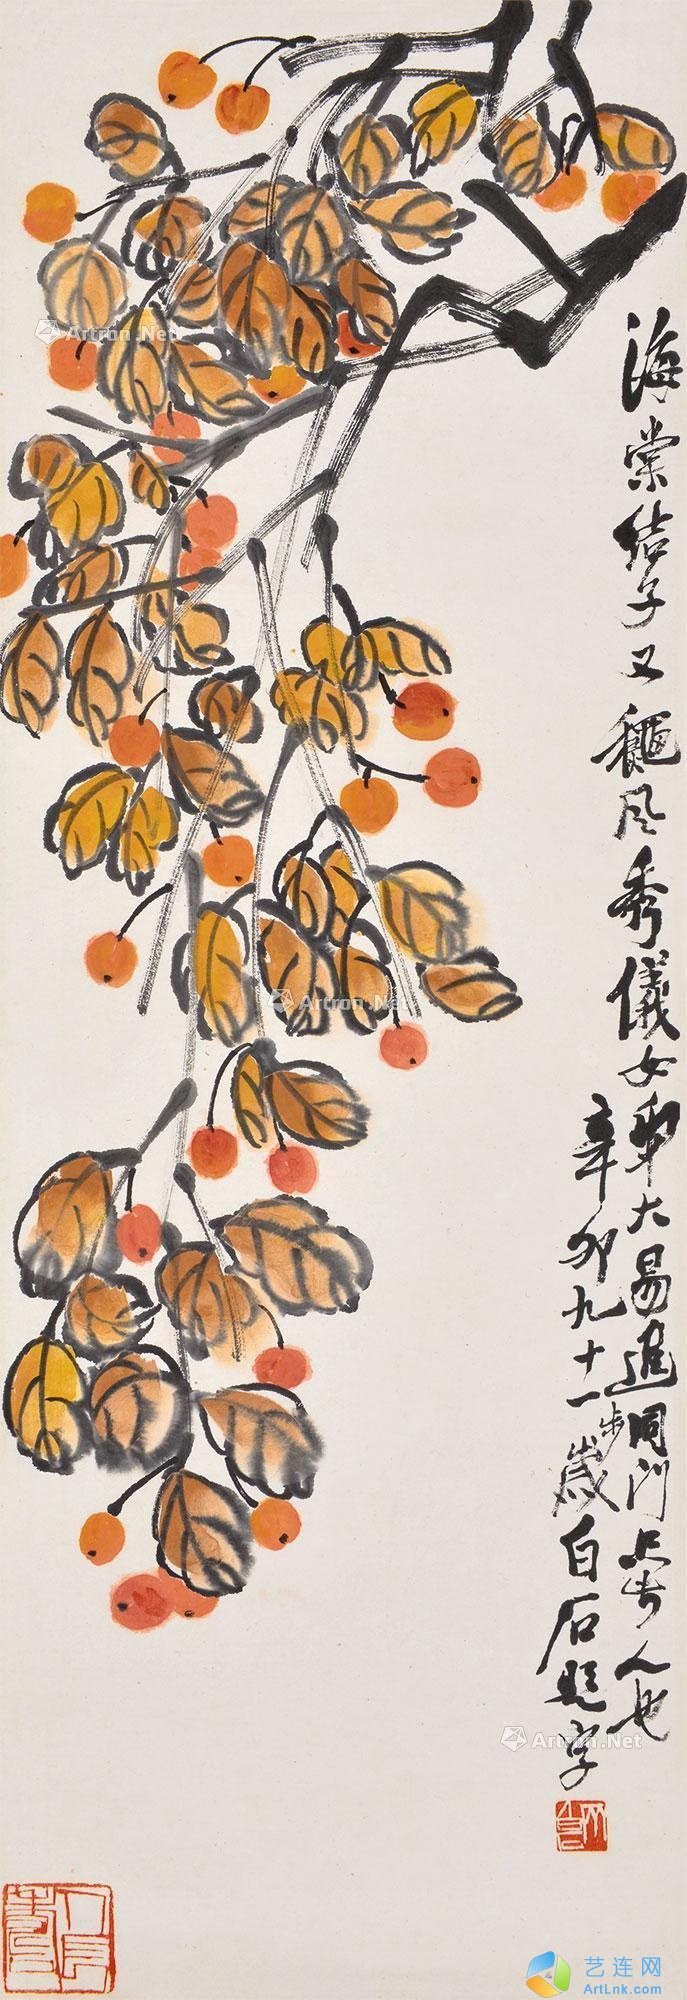 海棠结子又龝风秀儀女弟大易進同门
人也
辛卯九十一歲白石題字
步
Artron.Net
Artron.Net
Artron.Net
艺连网
ArtLnk.com